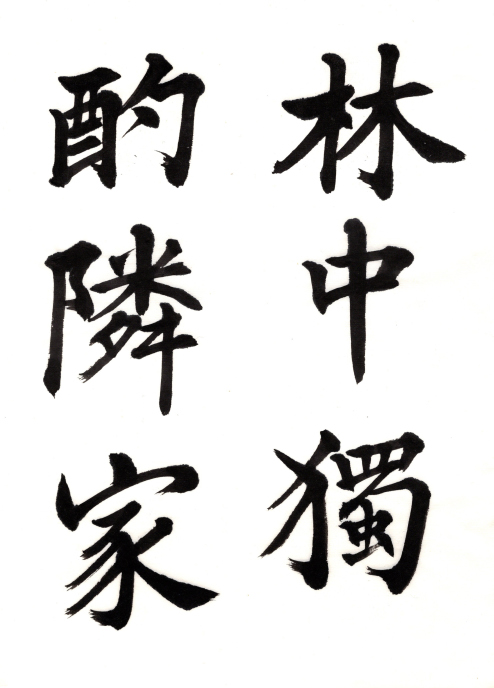 林中獨
酌隣家